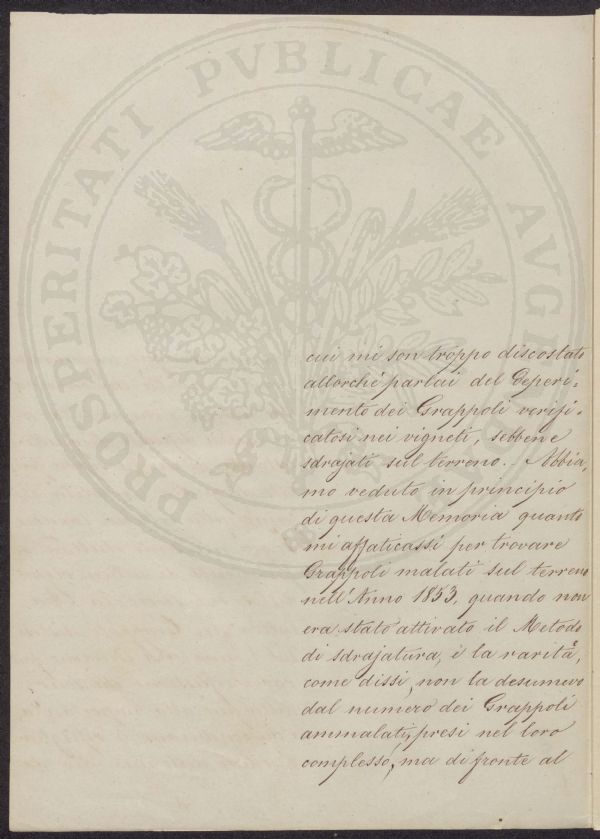 PROSPERITATI PVBLICAE AVGE
cui mi son troppo discostato
allorchè parlai del Deperi=
mento dei Grappoli verifi=
catosi nei vigneti, sebbene
sdrajati sul terreno. Abbia,
mo veduto in principio
di questa Memoria quanto
mi affaticassi per trovare
Grappoli malati sul terreno
nell'Anno 1853, quando non
era stato attivato il Metodo
di sdrajatura, e la rarità,
come dissi, non la desumevo
dal numero dei Grappoli
ammalati, presi nel loro
complesso, ma di fronte al